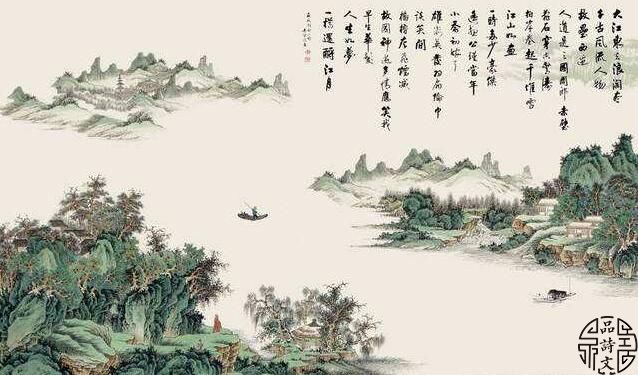 大江東去浪淘盡
千古風流人物
故壘西邊
人道是三國周郎赤壁
亂石穿空驚濤
拍岸卷起千堆雪
江山如畫
一時多少豪傑
遙想公瑾當年
小喬初嫁了
雄姿英發羽扇綸巾
談笑間
檣櫓灰飛煙滅
故國神遊多情應笑我
早生華髮
人生如夢
一樽還酹江月
品詩文